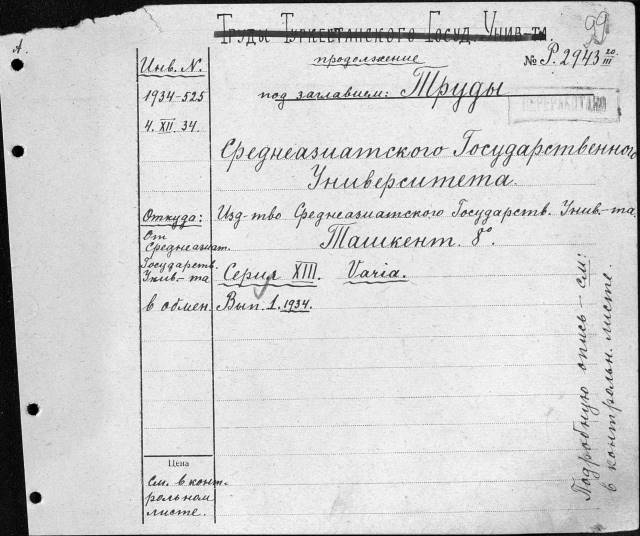 Труды Туркестанского Госуд. Унив-та.
А.
Инв. N.
1934-525
4. XII. 34.
продолжение
№ Р. 2943 20/III
под заглавием: Труды
ПЕРЕРАБОТАНО
Среднеазиатского Государственного
Университета.
Откуда:
От
Среднеазиат.
Государств.
Унив.-та
в обмен.
Изд-тво Среднеазиатского Государств. Унив.-та.
Ташкент. 8°
Серия XIII. Varia.
Вып. 1. 1934.
Подробную опись - см:
в контрольн. листе
Цена
см. в конт-
рольном
листе.